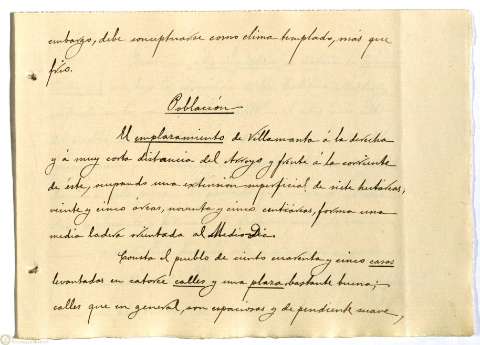 embargo, debe conceptuarse como clima templado, mas que
frio.
Población
El emplazamiento de Villamanta á la derecha
y á muy corta distancia del Arroyo y frente á la corriente
de éste, ocupando una extension superficial de siete hectáreas,
veinte y cinco áreas, noventa y cinco centiáreas, forma una
media ladera orientada al Medio Dia.
Consta el pueblo de ciento cuarenta y cinco casas
levantadas en catorce calles y una plaza bastante buena;
calles que en general, son espaciosas y de pendiente suave,